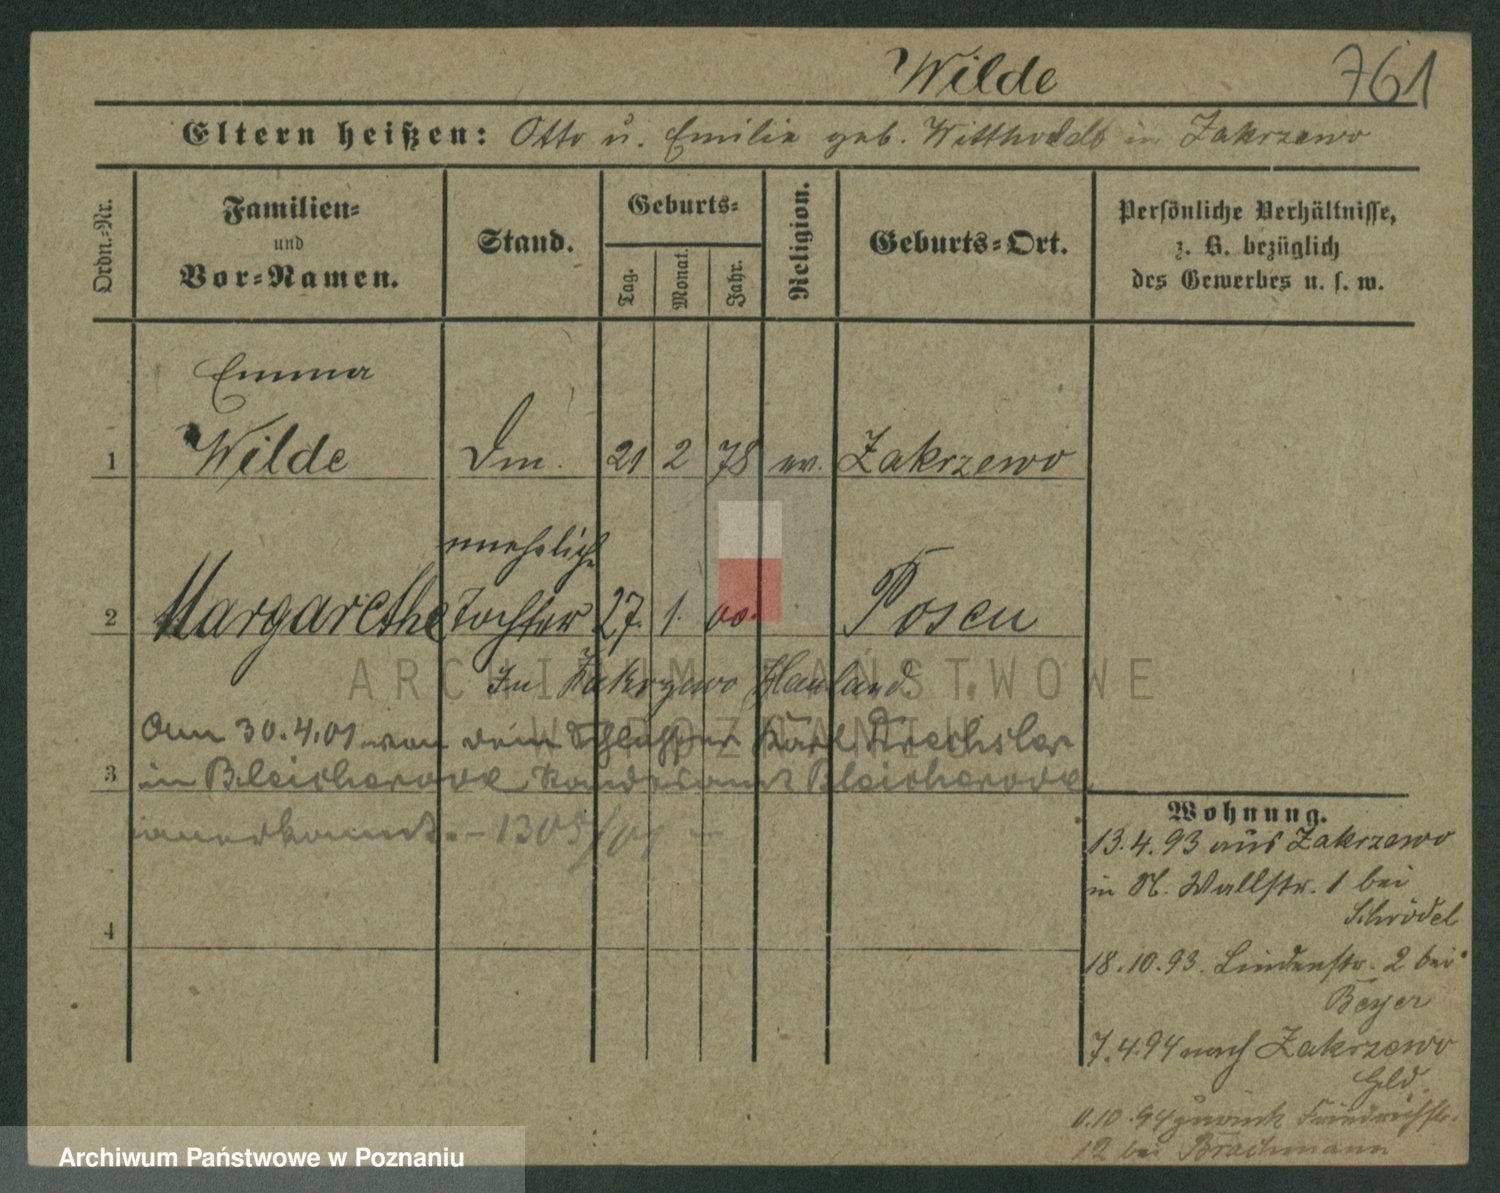 Wilde
761
Eltern heißen: Otto u. Emilie geb. in Zakrzewo
Ordn.-Nr.
Familien-
und
Vor-Namen.
Stand.
Geburts-
Tag.
Monat.
Jahr.
Religion.
Geburts-Ort.
Persönliche Verhältnisse,
z. B. bezüglich
des Gewerbes u. s. w.
Emma
1 Wilde Dm. 21 2 78 ev. Zakrzewo
unehelich
2 Margarethe Tochter 27. 1. 00. Posen
In Zakrzewo Hauland
Am 30.4.01 von dem Schlosser Karl Drechsler
3 in Bleicherode Standesamt Bleicherode
anerkannt. – 1305/01 –
4
Wohnung.
13.4.93 aus Zakrzewo
in N. Wallstr. 1 bei
Schrödel
18.10.93. Lindenstr. 2 bei
Beyer
7.4.94 nach Zakrzewo
Hld.
10.94 zurück Friedrichstr.
12 bei Brachmann
ARCHIWUM PAŃSTWOWE
W POZNANIU
Archiwum Państwowe w Poznaniu